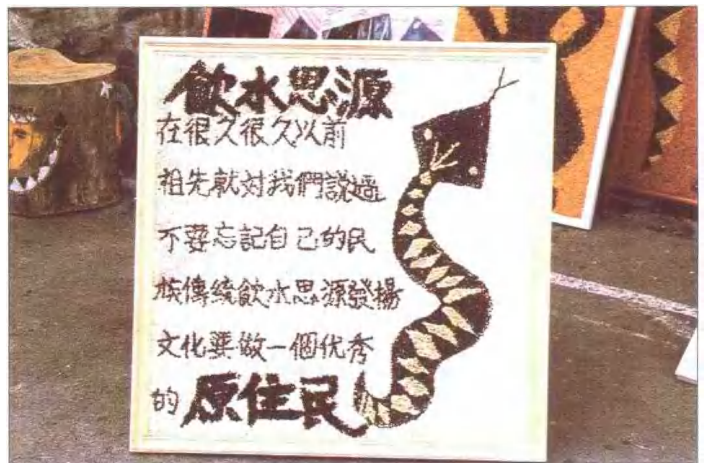 飲水思源
在很久很久以前
祖先就对我們說過
不要忘記自己的民
族傳統飲水思源發揚
文化要做一個优秀
的原住民